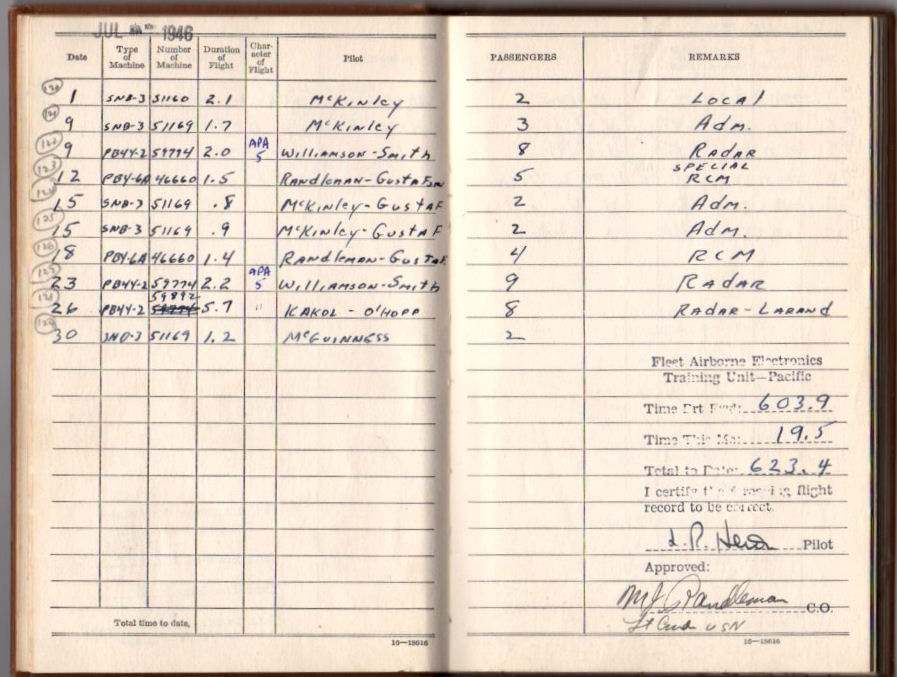 JUL 1946
Date Type of Machine Number of Machine Duration of Flight Char- acter of Flight Pilot PASSENGERS REMARKS
1 SNB-3 51160 2.1 McKinley 2 Local
9 SNB-3 51169 1.7 McKinley 3 Adm.
122 9 PB4Y-2 59774 2.0 APA 5 Williamson-Smith 8 Radar
123 12 PBY-6A 46660 1.5 Randleman-Gustafson 5 SPECIAL RCM
15 SNB-3 51169 .8 McKinley-Gustaf 2 Adm.
125 15 SNB-3 51169 .9 McKinley-Gustaf 2 Adm.
18 PBY-6A 46660 1.4 Randleman-Gustaf 4 RCM
23 PB4Y-2 59774 2.2 APA 5 Williamson-Smith 9 Radar
26 PB4Y-2 59892 5.7 " Kakol - O'Hopp 8 Radar-Larand
30 SNB-3 51169 1.2 McGuinness 2
Fleet Airborne Electronics
Training Unit—Pacific
Time Brt Fwd: 603.9
Time This Mo: 19.5
Total to Date: 623.4
I certify the foregoing flight
record to be correct.
Pilot
Approved:
M J Randleman C.O.
Lt Cmdr USN
Total time to date,
16—18616 16—18616